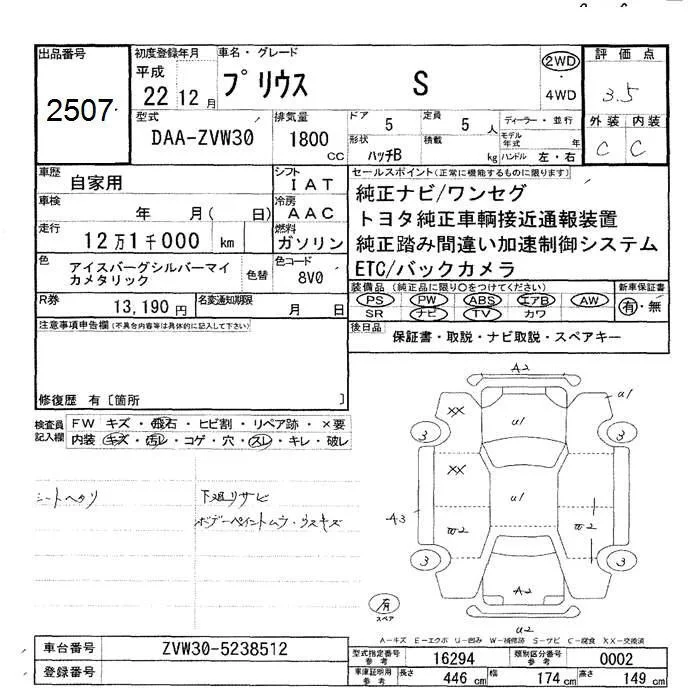 出品番号
2507
初度登録年月
平成
22 12 月
車名・グレード
プリウス S
2WD
・
4WD
評価点
3.5
型式
DAA-ZVW30
排気量
1800
cc
ドア
5
定員
5 人
形状
ハッチB
積載
kg
ディーラー・並行
モデル
年式 年
ハンドル 左・右
外装 内装
C C
車歴
自家用
シフト
IAT
車検
年 月( 日)
冷房
AAC
走行
12万1千000 km
燃料
ガソリン
色
アイスバーグシルバーマイ
カメタリック
色替
色コード
8V0
R券
13,190 円
名変通知期限
月 日
セールスポイント(正常に機能するものに限ります)
純正ナビ/ワンセグ
トヨタ純正車輌接近通報装置
純正踏み間違い加速制御システム
ETC/バックカメラ
装備品 (純正品に限り○をつけてください)
PS PW ABS エアB AW
SR ナビ TV カワ
新車保証書
有・無
後日品
保証書・取説・ナビ取説・スペアキー
注意事項申告欄(不具合内容等は具体的に記入して下さい)
修復歴 有 [箇所 ]
検査員
記入欄
FW キズ・飛石・ヒビ割・リペア跡・×要
内装 キズ・汚レ・コゲ・穴・スレ・キレ・破レ
シートヘタリ
下廻リサビ
ボデーペイントムラ・ウスキズ
A2
XX
U1
U1
3
3
XX
U1
A3
W2
W2
3
3
A2
有
スペア
U2
A-キズ E-エクボ U-凹み W-補修跡 S-サビ C-腐食 XX-交換済
車台番号
ZVW30-5238512
登録番号
型式指定番号
参考
16294
類別区分番号
参考
0002
車庫証明用
参考
長さ
446 cm
幅
174 cm
高さ
149 cm